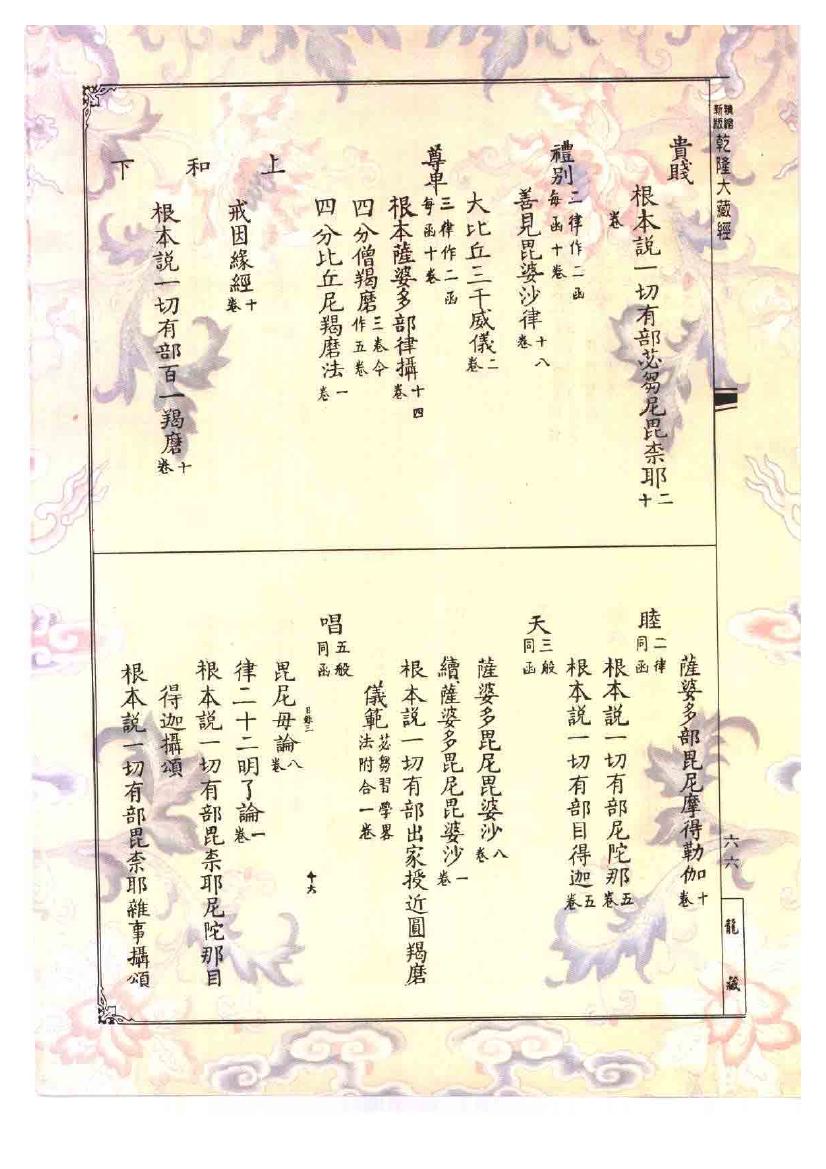 新版
乾隆大藏經
六六
龍藏
貴賤
根本說一切有部苾芻尼毘柰耶二十
卷
禮別二律作二函每函十卷
善見毘婆沙律十八卷
大比丘三千威儀二卷
尊卑三律作二函每函十卷
根本薩婆多部律攝十四卷
四分僧羯磨三卷今作五卷
四分比丘尼羯磨法一卷
上
戒因緣經十卷
和
根本說一切有部百一羯磨十卷
下
薩婆多部毘尼摩得勒伽十卷
睦二律同函
根本說一切有部尼陀那五卷
根本說一切有部目得迦五卷
天三般同函
薩婆多毘尼毘婆沙八卷
續薩婆多毘尼毘婆沙一卷
根本說一切有部出家授近圓羯磨
儀範苾芻習學畧法附合一卷
唱五般同函
目錄三
十六
毘尼毋論八卷
律二十二明了論一卷
根本說一切有部毘柰耶尼陀那目
得迦攝頌
根本說一切有部毘柰耶雜事攝頌